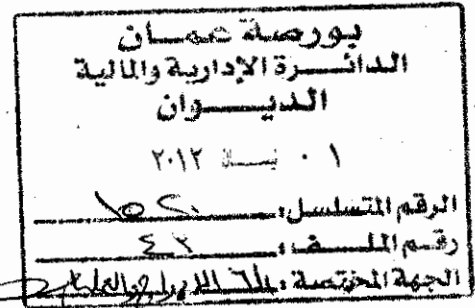 بورصة عمان
الدائرة الإدارية والمالية
الديوان
٠١ نيسان ٢٠١٢
الرقم المتسلسل:
رقم الملف:
الجهة المختصة: